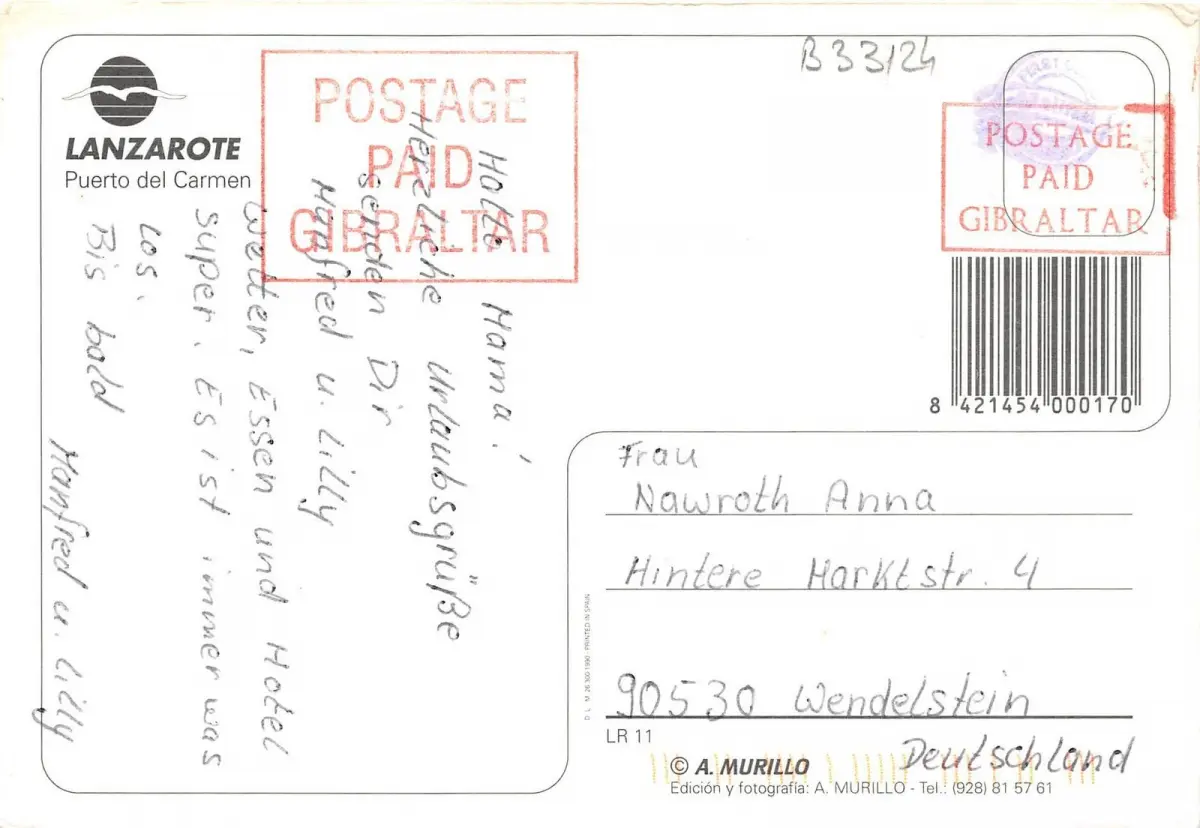 LANZAROTE
Puerto del Carmen
POSTAGE
PAID
GIBRALTAR
B33/24
POSTAGE
PAID
GIBRALTAR
8 421454 000170
Hallo Mama!
Herzliche Urlaubsgrüße
senden Dir
Manfred u. Lilly
Wetter, Essen und Hotel
super. Es ist immer was
los.
Bis bald
Manfred u. Lilly
Frau
Nawroth Anna
Hintere Marktstr. 4
90530 Wendelstein
Deutschland
D. L. M. 26.360-1990 - PRINTED IN SPAIN
LR 11
© A. MURILLO
Edición y fotografía: A. MURILLO - Tel.: (928) 81 57 61